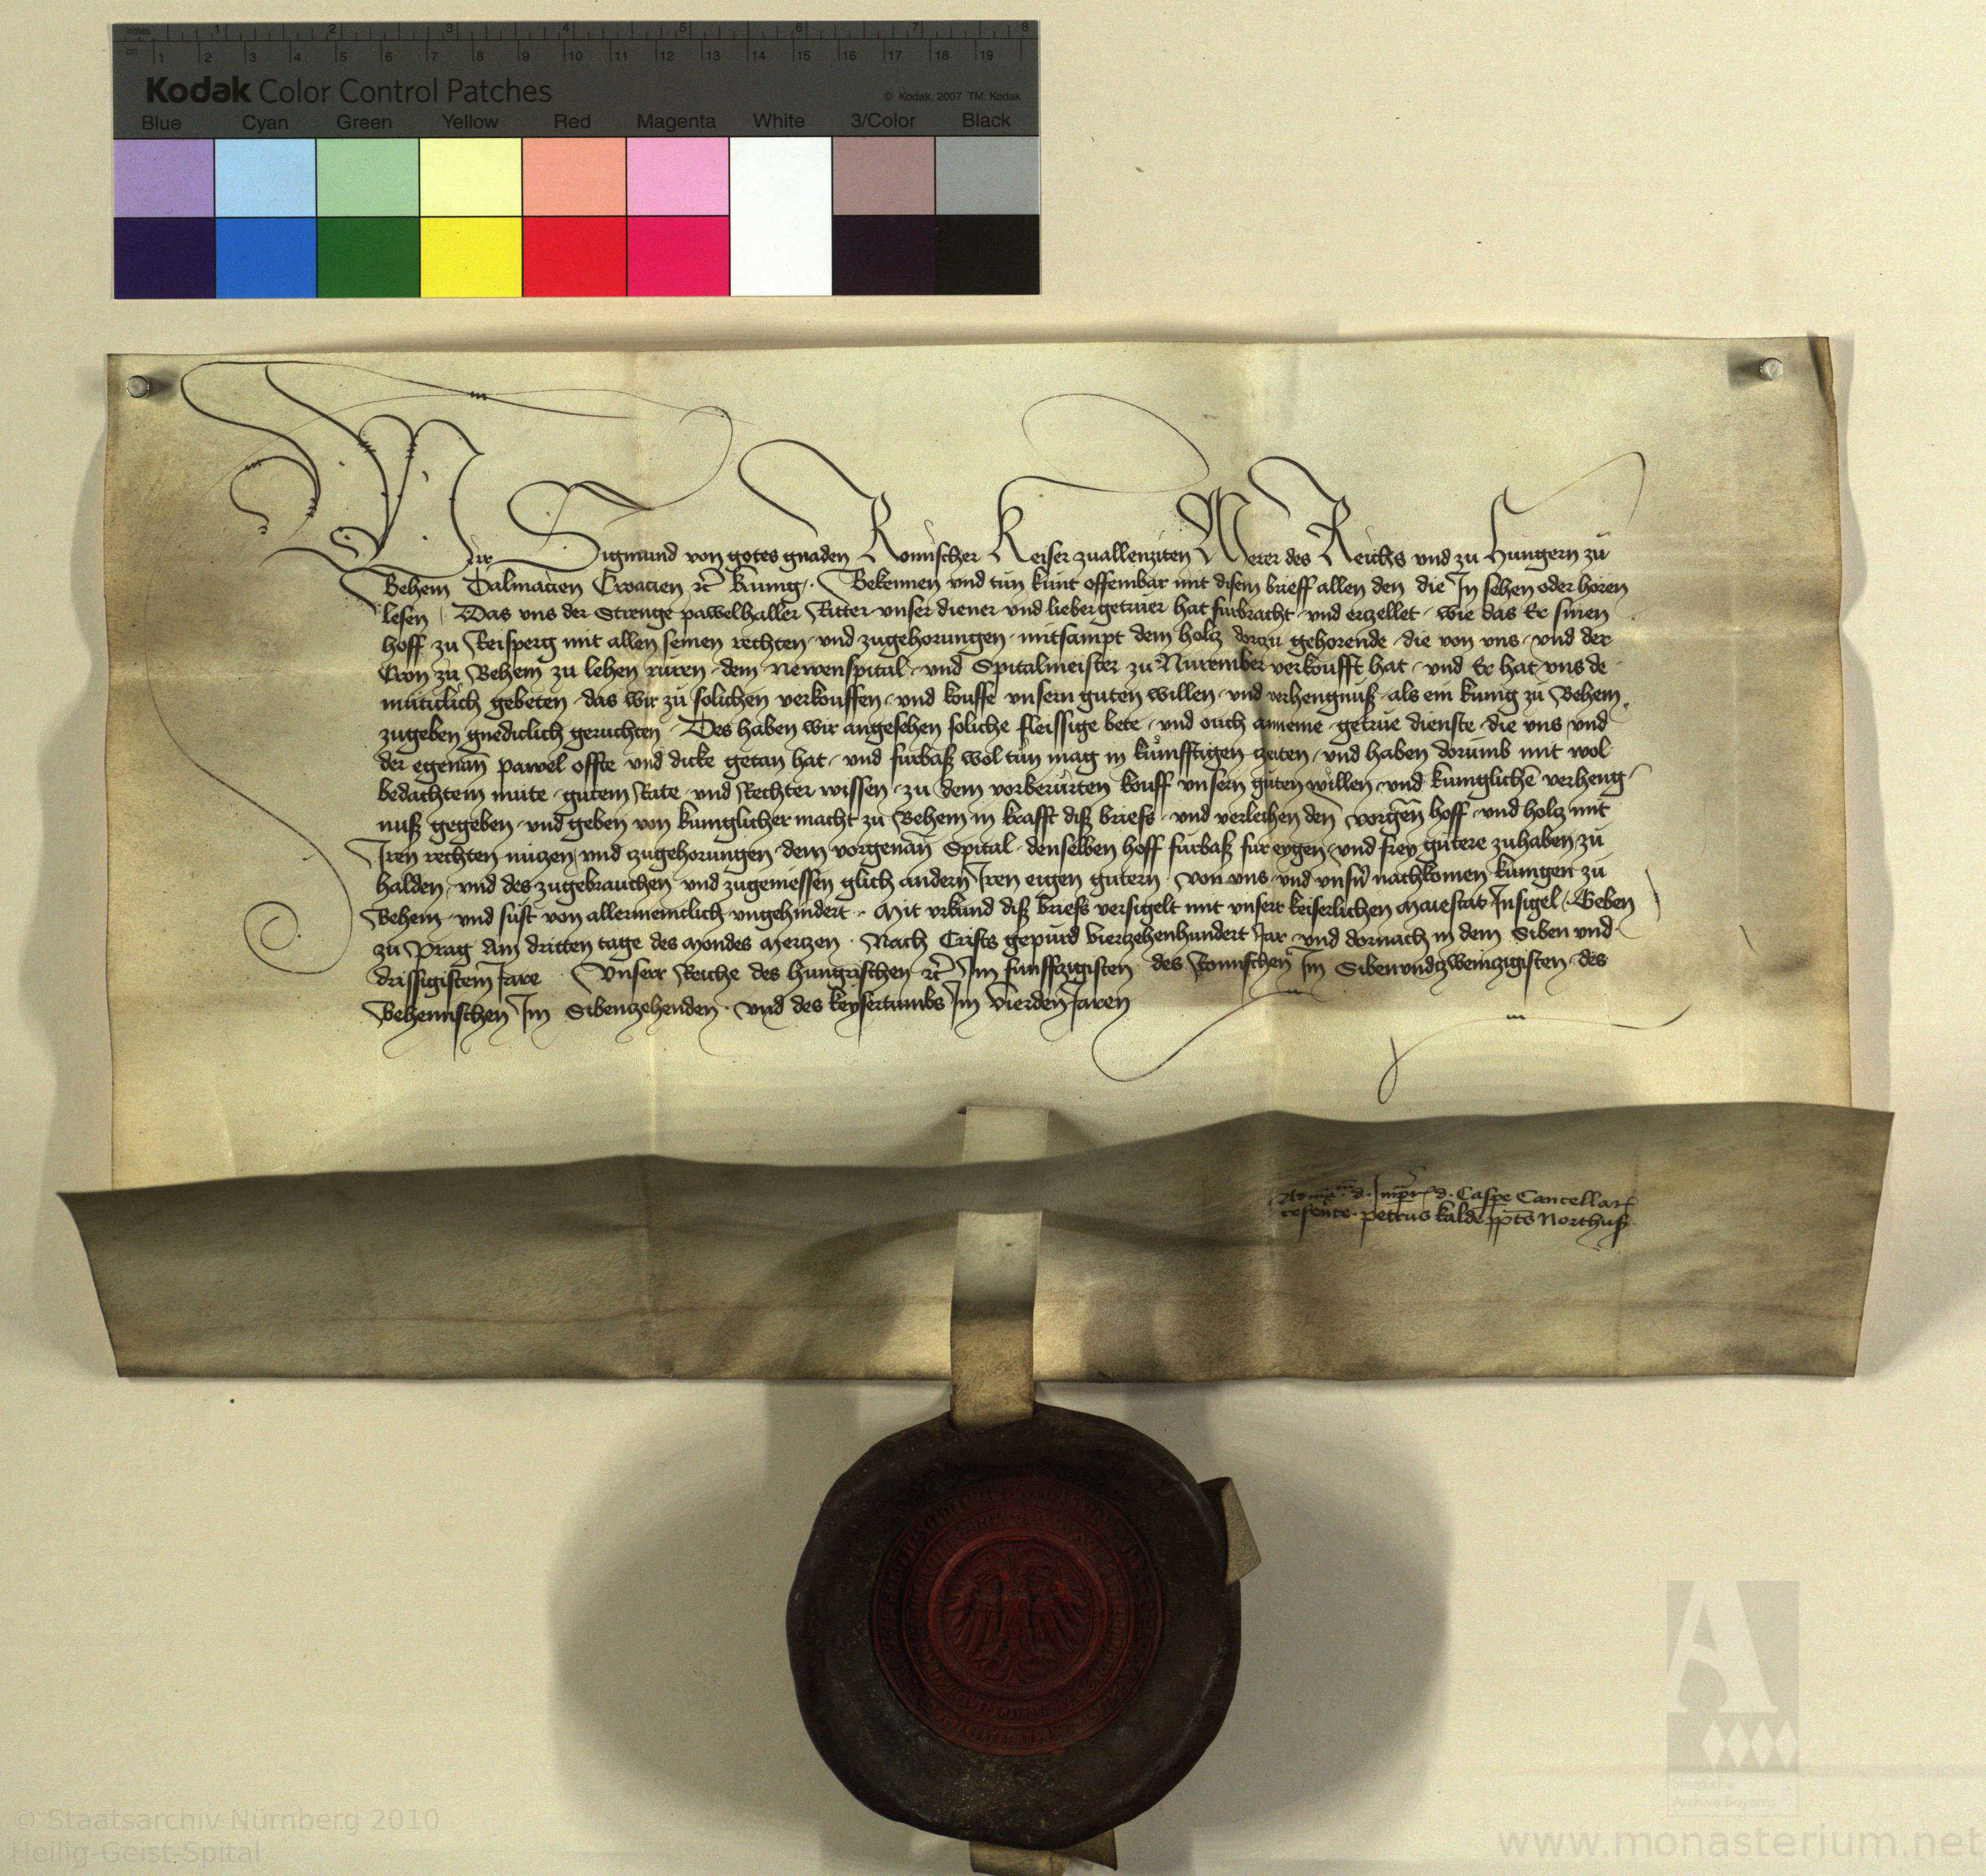 inches 1 2 3 4 5 6 7 8
cm 1 2 3 4 5 6 7 8 9 10 11 12 13 14 15 16 17 18 19
Kodak Color Control Patches © Kodak, 2007 TM: Kodak
Blue Cyan Green Yellow Red Magenta White 3/Color Black
Wir Sigmund von gotes gnaden Romischer Keiser zuallenziten Merer des Reichs und zu Hungern zů
Behem Dalmacien Croacien ꝛc̄ kunig · Bekennen vnd tůn kunt offembar mit disem brieff allen den die In sehen oder horen
lesen Das vns der Strenge pawel haller Ritter vnser diener vnd lieber getruer hat furbracht vnd erczellet wie das Er sinen
hoff zu Reisperg mit allen seinen rechten vnd zugehorungen mitsampt dem holtz dorzu gehorende die von vns vnd der
Cron zů Behem zu lehen rüren dem newenspital vnd Spitalmeister zů Nuremberg verkoufft hat vnd Er hat vns de
muticlich gebeten das wir zů solichen verkouffen vnd kouffe vnsern guten willen vnd verhengnuß als ein kunig zu Behem
zugeben gnediclich geruchten Des haben wir angesehen soliche fleissige bete vnd ouch anneme getrůe dienste die vns vnd
der egenan̄ pawel offte vnd dicke getan hat vnd furbaß wol tůn mag in kůnfftigen zeiten vnd haben dorůmb mit wol
bedachtem mute gutem Rate vnd Rechter wissen zu dem vorberůrten kouff vnsern gůten willen vnd kunglichē verheng
nuß gegeben vnd geben von kunglicher macht zů Behem in krafft diß briefs vnd verleihen den vorgen̄ hoff vnd holtz mit
Iren rechten nutzen vnd zugehorungen dem vorgenan̄ Spital denselben hoff furbaß fur eygen vnd frey gutere zuhaben zů
halden vnd des zugebrauchen vnd zugeniessen glich andern Iren eigen gutern von vns vnd vnsn̄ nachkomen kunigen zů
Behem vnd sůst von allermeniclich vngehindert Mit vrkund diß briefs versigelt mit vnserr keiserlichen Maiestat Insigel Geben
zů Prag Am dritten tage des Mondes Mertzen Nach Crists gepurd vierczehenhundert Jar vnd dornach in dem Siben vnd
drissigistem Jare Vnserr Reiche des hungrischen ꝛc̄ Im funffzigisten des Romischen Im Sibenvndzweinczigisten des
Behemischen Im Sibenzehenden vnd des keysertumbs Im Vierden Jaren
Ad md. d. Impr̄ d. Caspe Cancellar̄
referēte petrus kalde ppts Northuß
© Staatsarchiv Nürnberg 2010
Heilig-Geist-Spital
www.monasterium.net